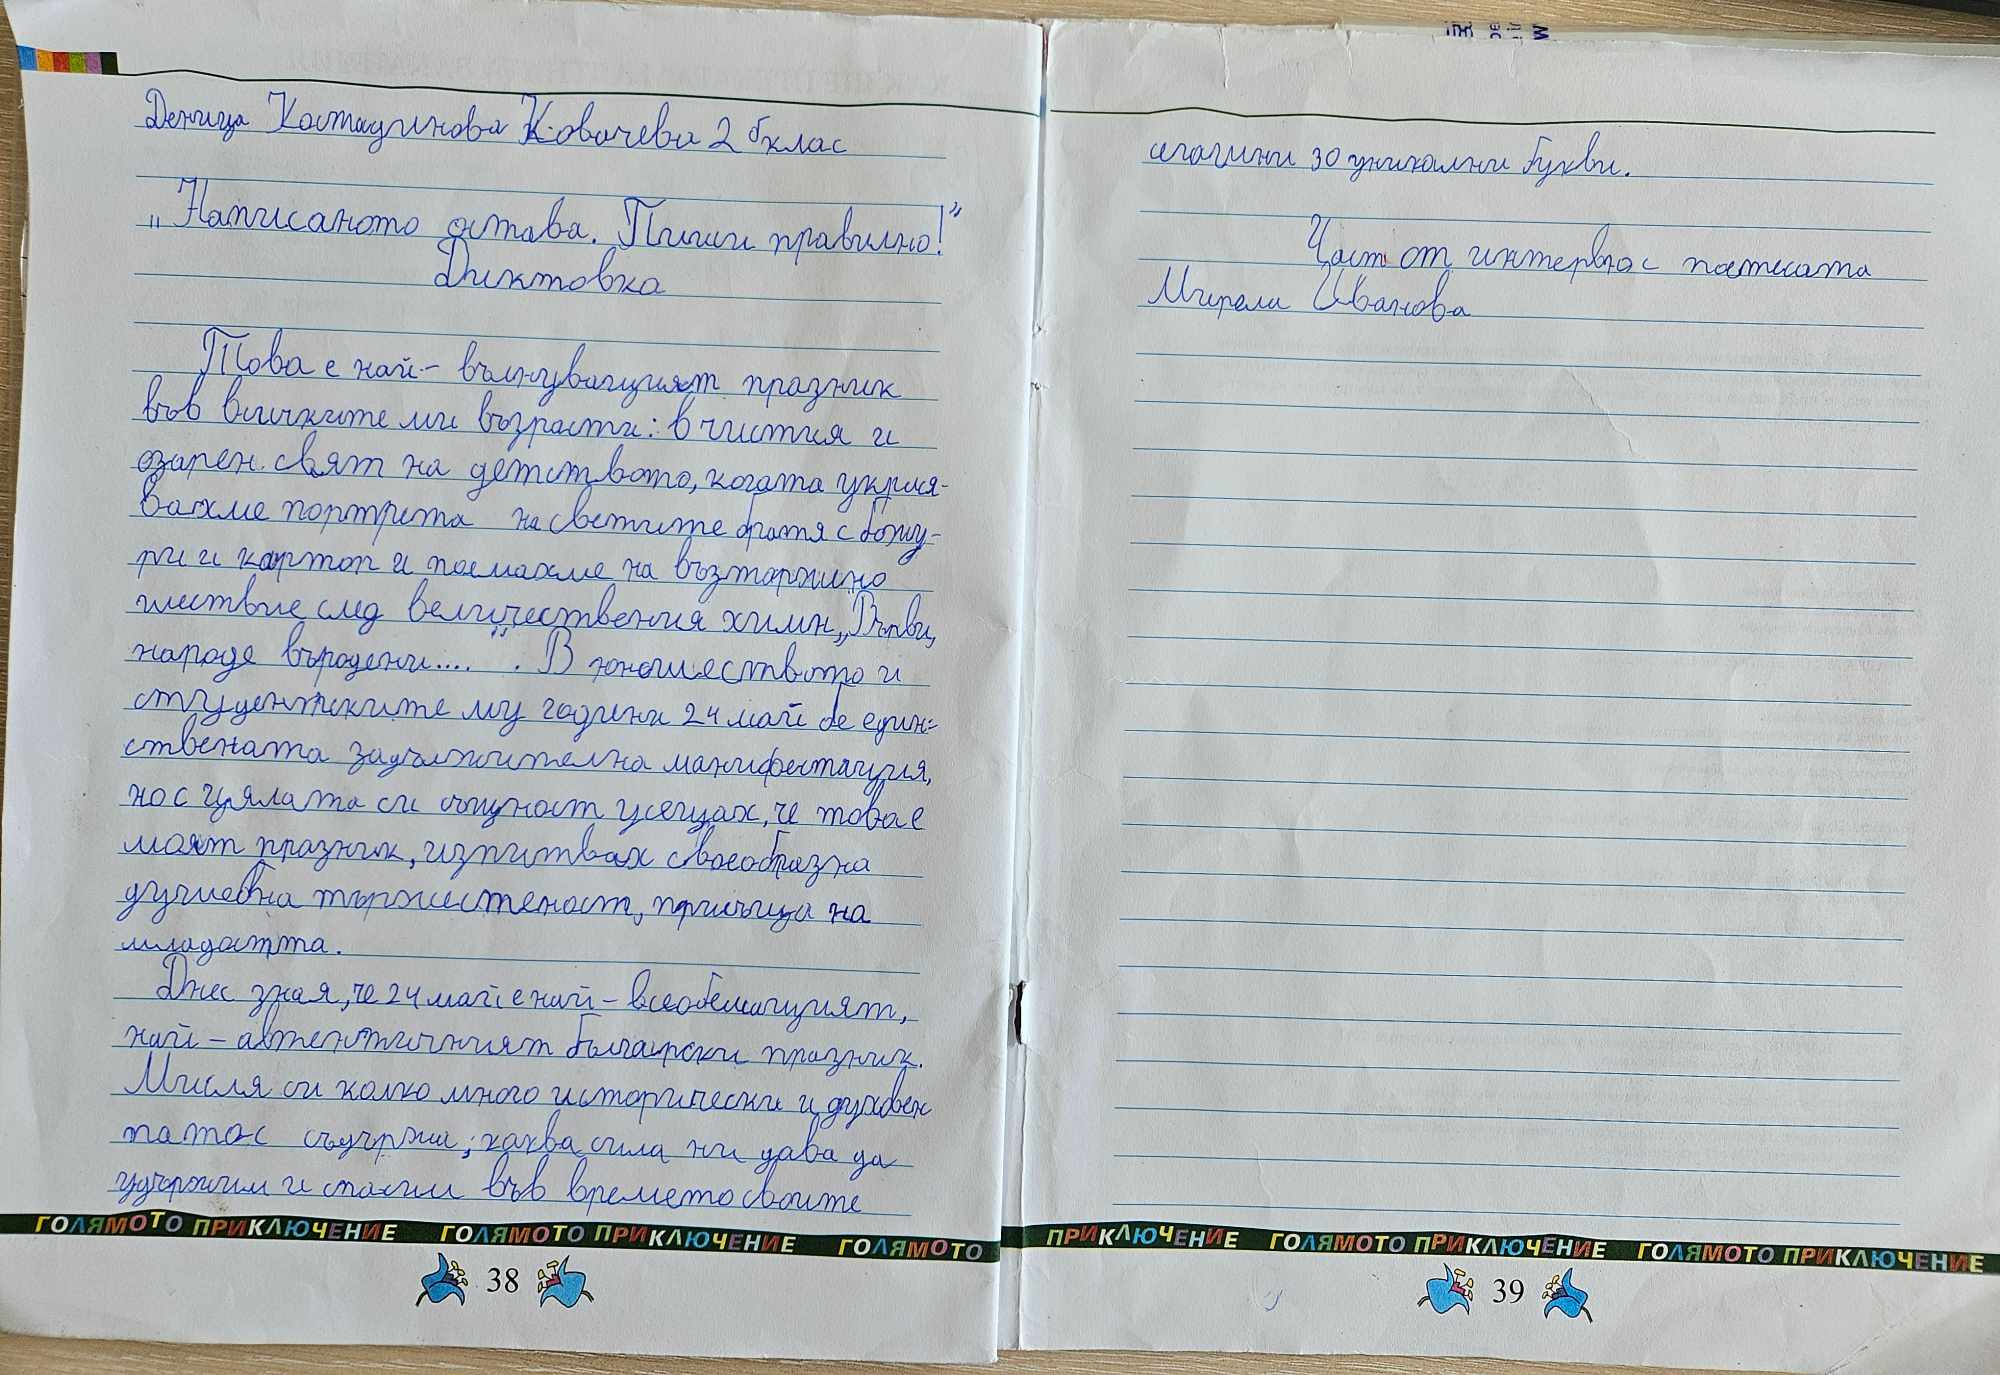 Деница Костадинова Ковачева 2 б клас
„Написаното остава. Пиши правилно!“
Диктовка
Това е най - вълнуващият празник
във всичките ми възрасти: в чистия и
озарен свят на детството, когата украся-
вахме портрета на светите братя с божу-
ри и картон и поемахме на възторжино
шествие след величествения химн „Върви,
народе върοдени....“. В юношеството и
студентските му години 24 май бе един-
ствената задължителна манифестация,
но с цялата си същност усещах, че това е
моят празник, изпитвах своеобразна
душевна тържественост, присъща на
младостта.
Днес зная, че 24 май е най - всеобемащият,
най - автентичният български празник.
Мисля си колко много исторически и духовен
патос съдържа; каква сила ни дава да
удържим и спасим във времето своите
сегашни 30 уникални букви.
Част от интервю с поетесата
Мирела Иванова
ГОЛЯМОТО ПРИКЛЮЧЕНИЕ ГОЛЯМОТО ПРИКЛЮЧЕНИЕ ГОЛЯМОТО
ПРИКЛЮЧЕНИЕ ГОЛЯМОТО ПРИКЛЮЧЕНИЕ ГОЛЯМОТО ПРИКЛЮЧЕНИЕ
38
39